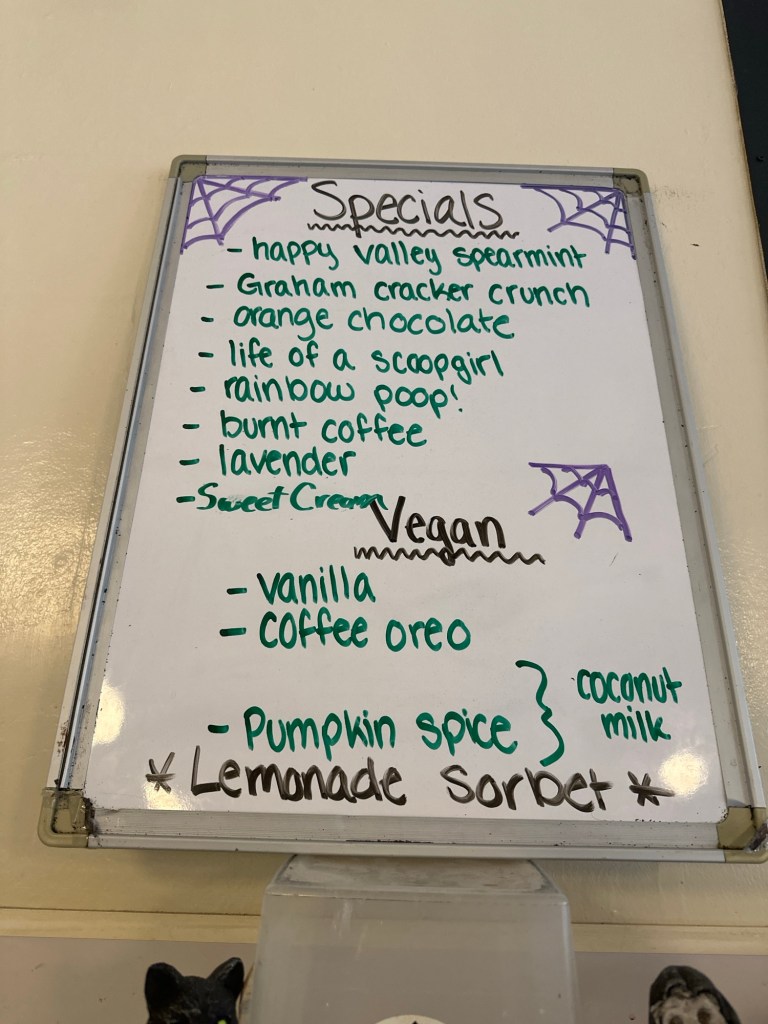 Specials
- happy valley spearmint
- Graham cracker crunch
- orange chocolate
- life of a scoopgirl
- rainbow poop!
- burnt coffee
- lavender
- Sweet Cream
Vegan
- vanilla
- coffee oreo
- Pumpkin spice } coconut milk
* Lemonade Sorbet *